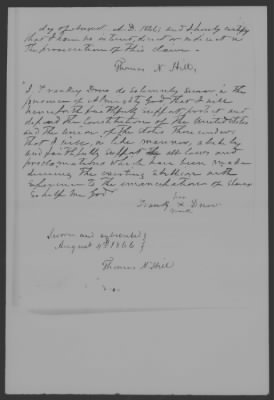 day of August A.D. 1866; and I hereby certify
that I have no interest, direct or indirect in
the prosecution of this claim.
Thomas N. Hill,
"I Franky Drew do solemnly swear in the
presence of Almighty God that I will
henceforth faithfully support, protect and
defend the Constitution of the United States
and the Union of the States thereunder,
that I will, in like manner, abide by
and faithfully support all laws and
proclamations which have been made
during the existing rebellion with
reference to the emancipation of slaves
So help me God"
her
Franky X Drew
mark
Sworn and subscribed
August 4th 1866
Thomas N. Hill